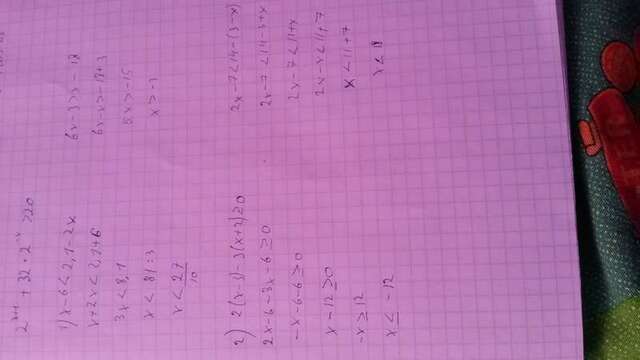 2^(x+1) + 32 · 2^(-x) > 20
1) x-6 < 2,1-2x
x+2x < 2,1+6
3x < 8,1
x < 81:3
x < 27/10
6x-3 > x-18
6x-x > -18+3
5x > -15
x > -3
2) 2(x-3)-3(x+2) ≥ 0
2x-6-3x-6 ≥ 0
-x-6-6 ≥ 0
x-12 ≥ 0
-x ≥ 12
x ≤ -12
2x-7 < 14-(3-x)
2x-7 < 14-3+x
2x-7 < 11+x
2x-x < 11+7
x < 11+7
x < 18